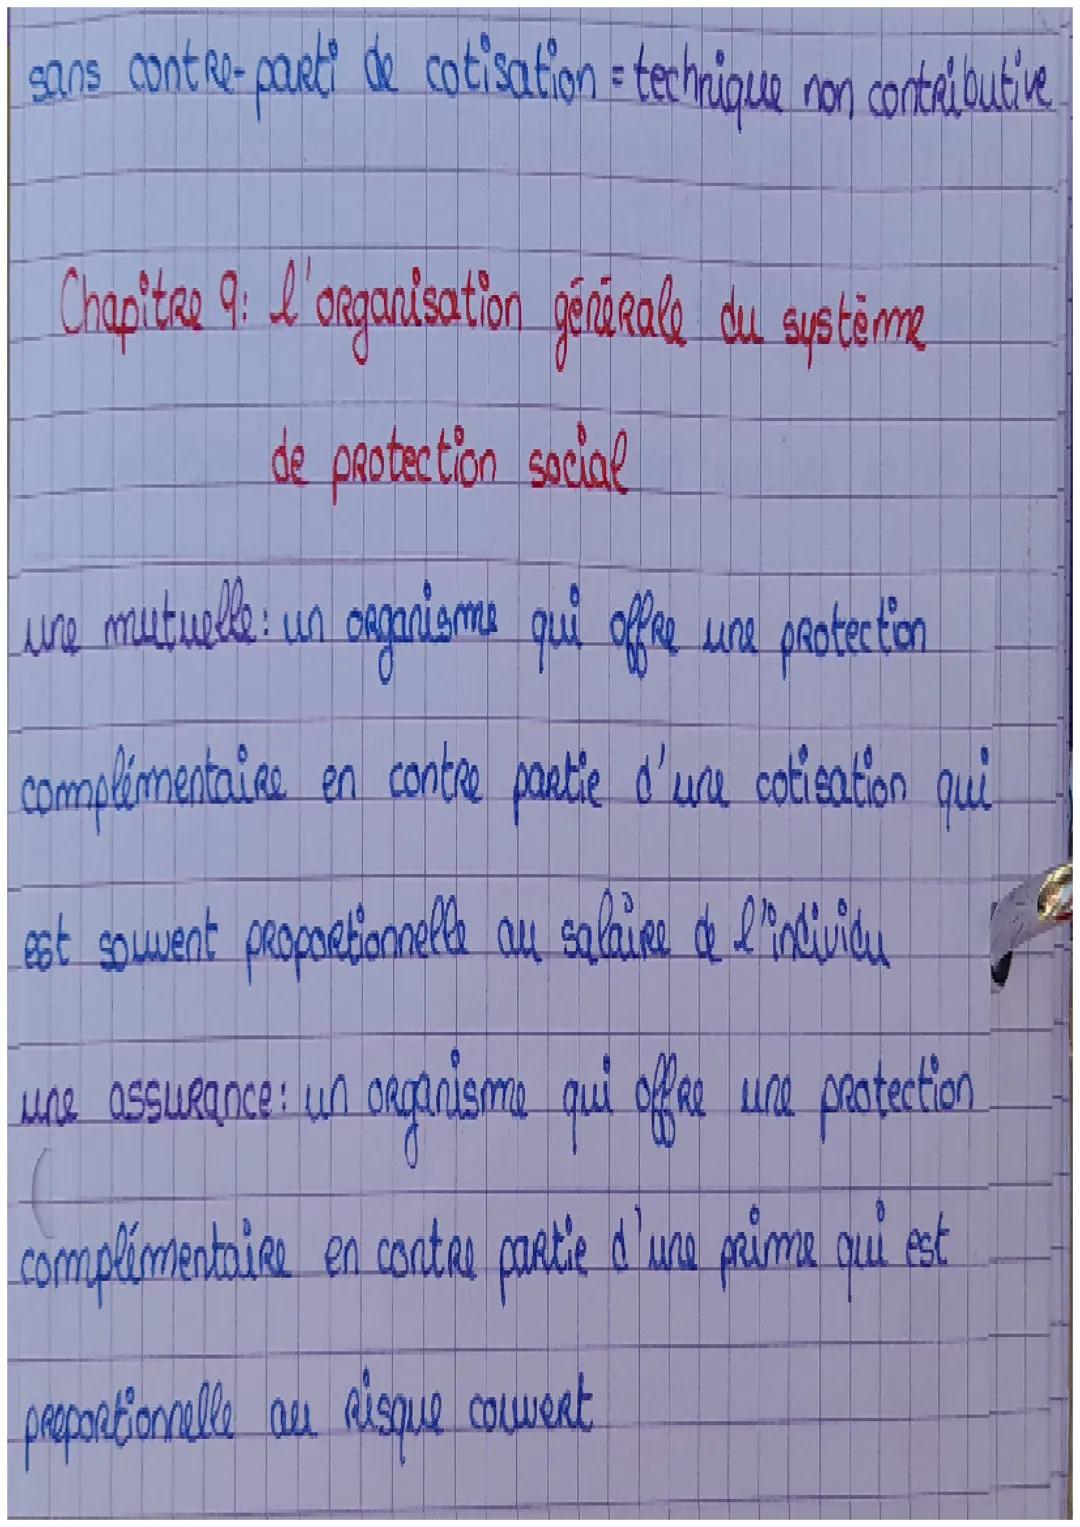 sans contre-parti de cotisation = technique non contributive
Chapitre 9: l'organisation générale du système
de protection social
une mutuelle: un organisme qui offre une protection
complémentaire en contre partie d'une cotisation qui
est souvent proportionnelle au salaire de l'individu
une assurance: un organisme qui offre une protection
complémentaire en contre partie d'une prime qui est
proportionnelle au risque couvert